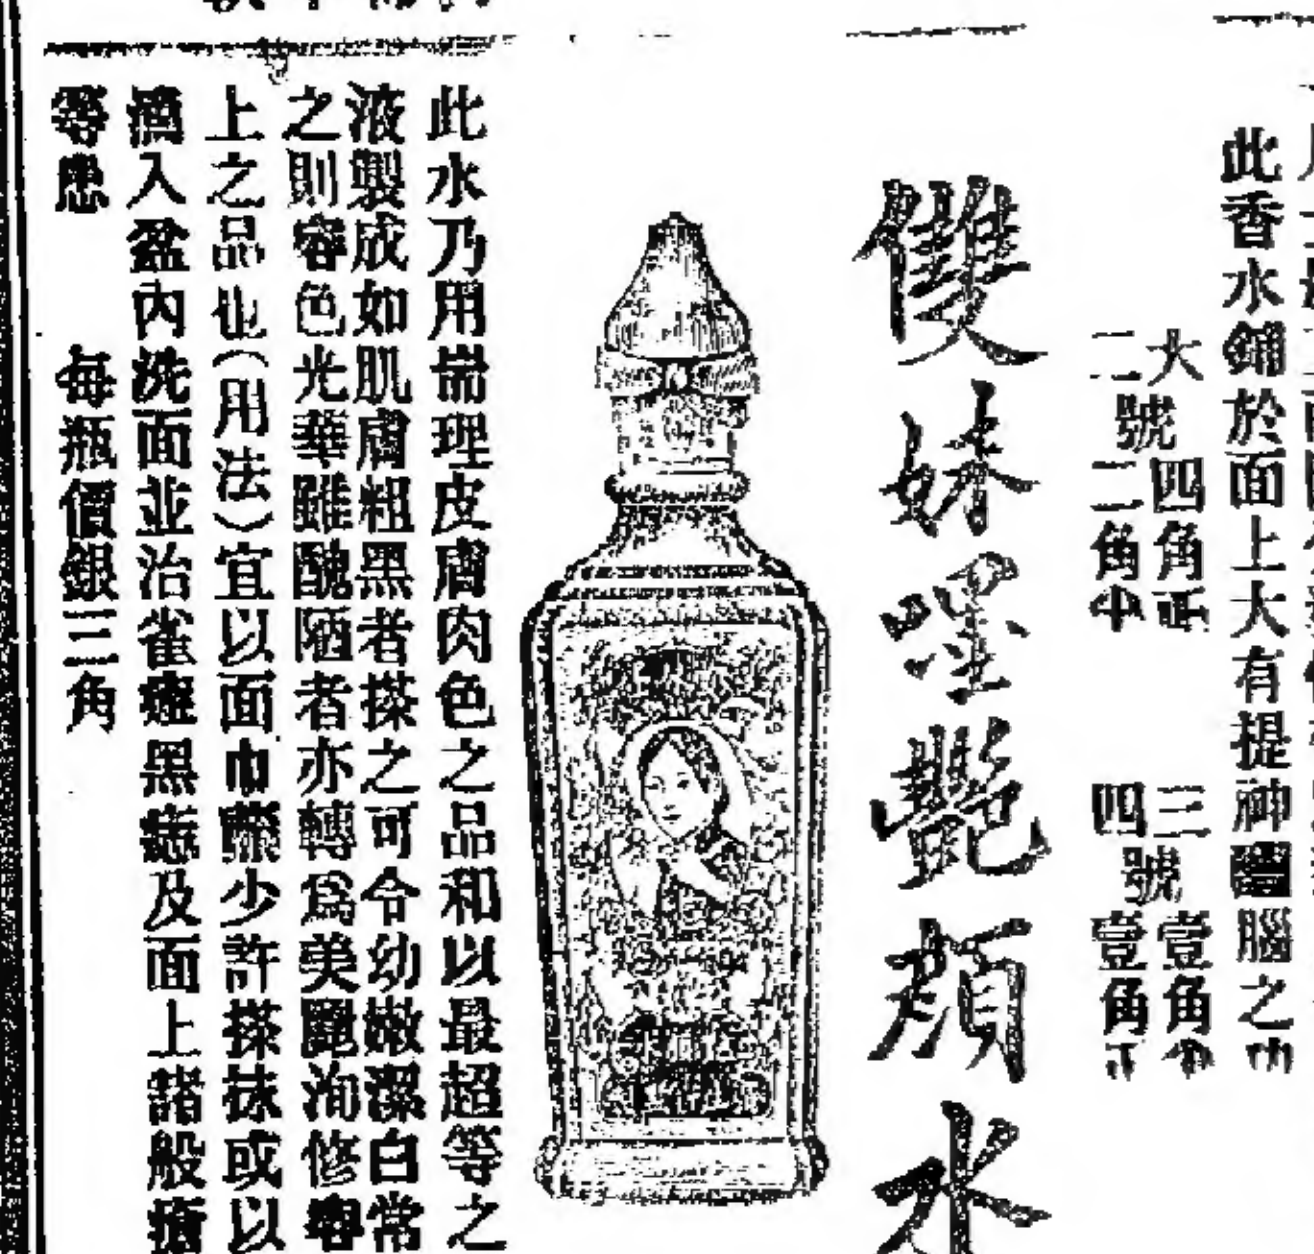 此香水鋪於面上大有提神醒腦之功
大
二號
四角正
二角半
三
四號
壹角半
壹角正
雙妹嚜艷顏水
此水乃用耑理皮膚肉色之品和以最超等之
液製成如肌膚粗黑者搽之可令幼嫩潔白常
之則容色光華雖醜陋者亦轉為美麗洵修容
上之品也(用法)宜以面巾蘸少許搽抹或以
滴入盆內洗面並治雀癍黑痣及面上諸般瘡
等患　每瓶價銀三角